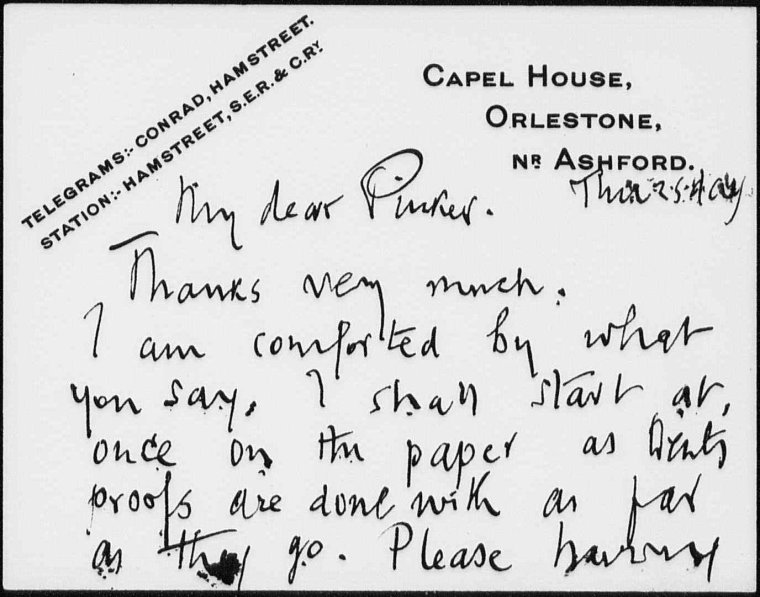 TELEGRAMS:- CONRAD, HAMSTREET.
STATION:- HAMSTREET, S.E.R. & C.RY.
CAPEL HOUSE,
ORLESTONE,
NR ASHFORD.
Thursday
My dear Pinker.
Thanks very much.
I am comforted by what
you say. I shall start at
once on the paper as Dents
proofs are done with as far
as they go. Please